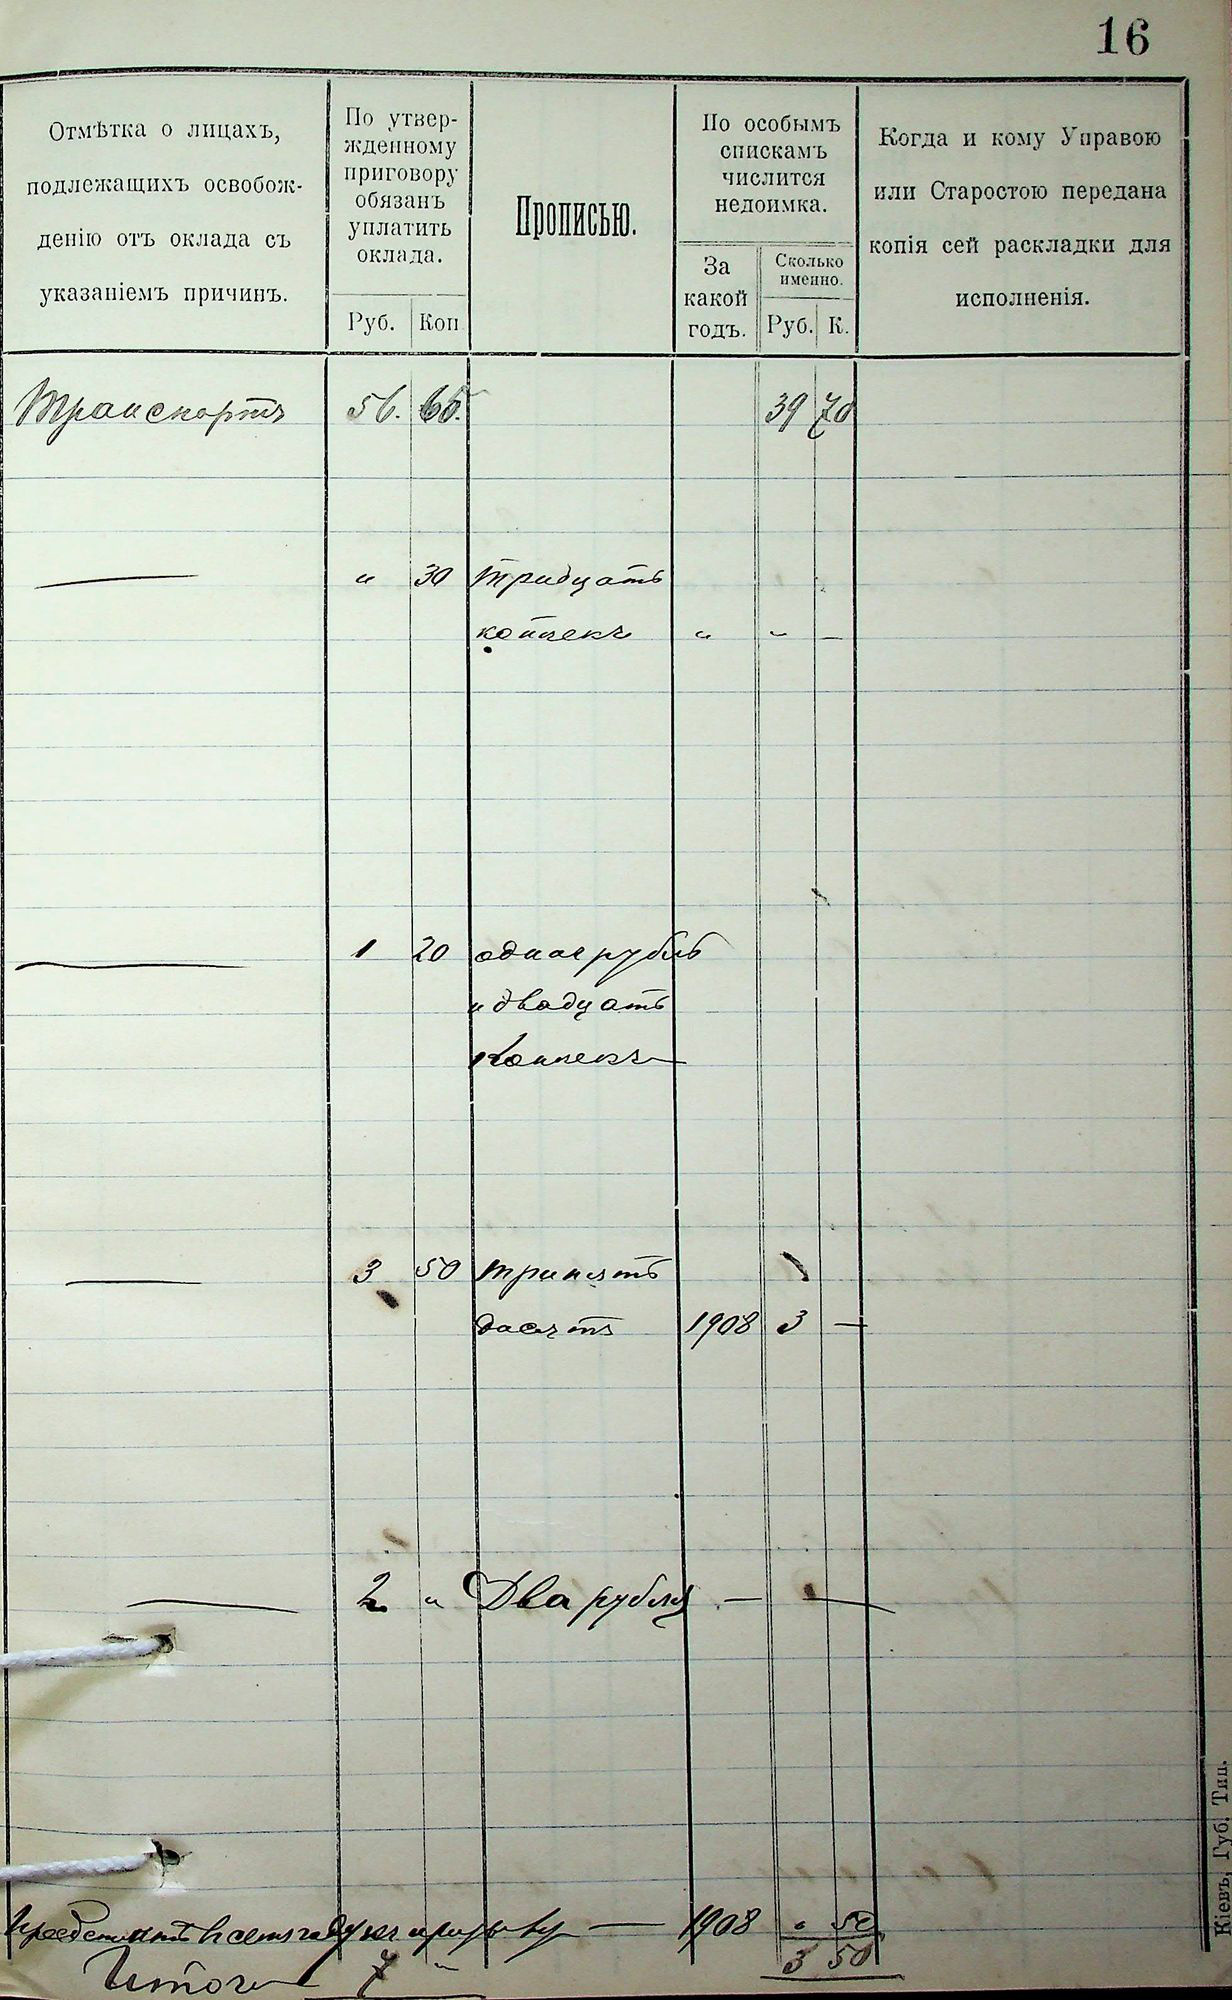 16
Отмѣтка о лицахъ,
подлежащихъ освобож-
денію отъ оклада съ
указаніемъ причинъ.
По утвер-
жденному
приговору
обязанъ
уплатить
оклада.
Руб. Коп
Прописью.
По особымъ
спискамъ
числится
недоимка.
За
какой
годъ.
Сколько
именно.
Руб. К.
Когда и кому Управою
или Старостою передана
копія сей раскладки для
исполненія.
Транспортъ 56. 65. 39 70
— „ 30 тридцать
копѣекъ „ „ —
— 1 20 один рубль
и двадцать
копѣекъ —
— 3 50 три пять
десятъ 1908 3 —
— 2 „ Два рубля — —
1908 „ 50
Итого 7 „ 3 50
Кіевъ, Губ. Тип.